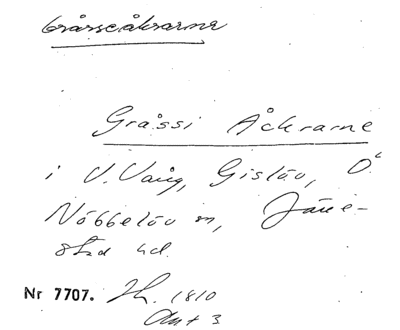 Gråsseåkrarne
Gråssi Åckrarne
i V. Vång, Gislöv, Ö.
Nöbbelöv sn, Järre-
stad hd.
Nr 7707. Jh. 1810
Akt 3